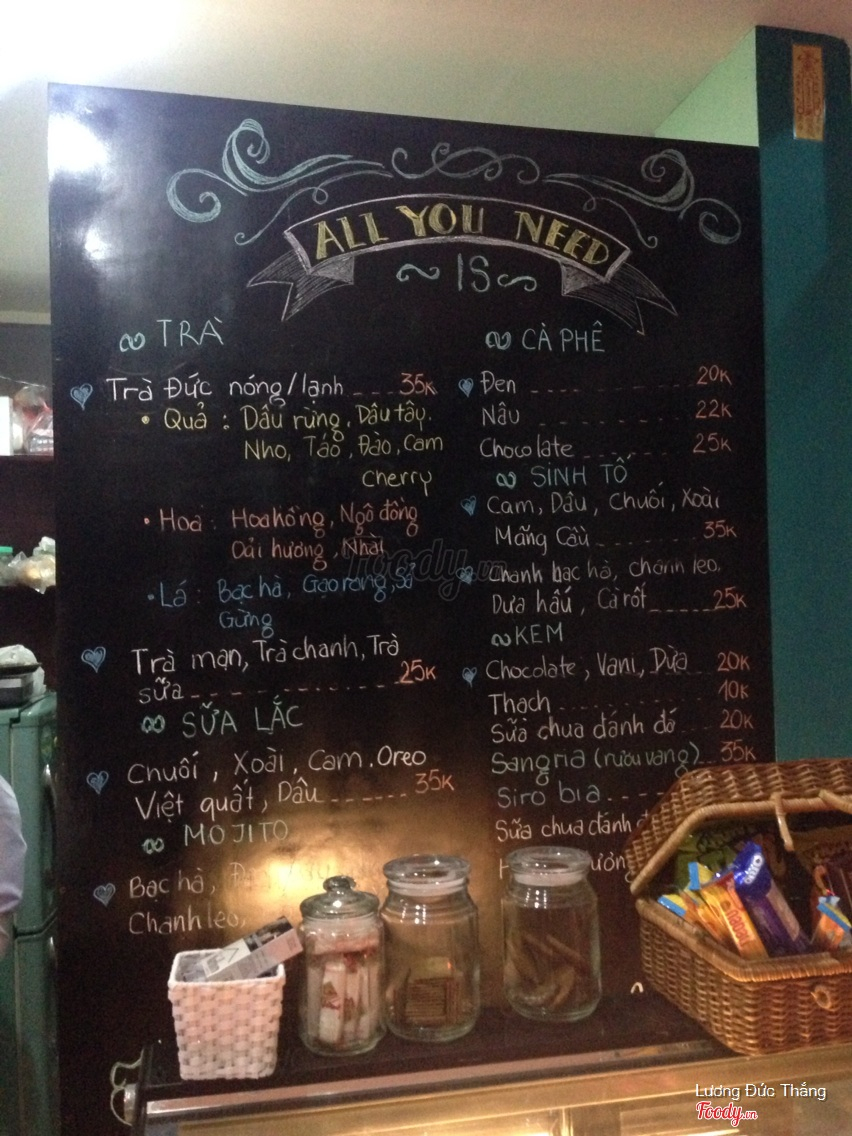 ALL YOU NEED
IS
TRÀ
Trà Đức nóng/lạnh 35K
Quả : Dâu rừng, Dâu tây,
Nho, Táo, Đào, Cam
Cherry
Hoa : Hoa hồng, Ngô đồng
Oải hương, Nhài
Lá : Bạc hà, Gạo rang, Sả
Gừng
Trà mạn, Trà chanh, Trà
sữa 25K
SỮA LẮC
Chuối, Xoài, Cam, Oreo
Việt quất, Dâu 35K
MOJITO
Bạc hà,
Chanh leo,
CÀ PHÊ
Đen 20K
Nâu 22K
Chocolate 25K
SINH TỐ
Cam, Dâu, Chuối, Xoài
Mãng Cầu 35K
Chanh bạc hà, chanh leo,
Dưa hấu, Cà rốt 25K
KEM
Chocolate, Vani, Dừa 20K
Thạch 10K
Sữa chua đánh đá 20K
Sangria (rượu vang) 35K
Siro bia
Sữa chua đánh
Foody.vn
Lương Đức Thắng
Foody.vn